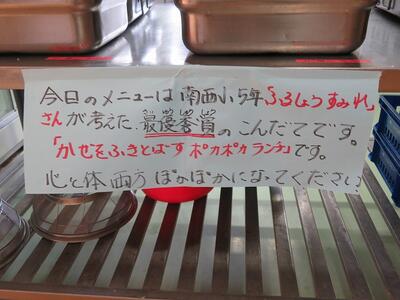 今日のメニューは南西小5年「ふるしょうすみれ」
さんが考えた、最優秀賞のこんだてです。
「かぜをふきとばすポカポカランチ」です。
心と体両方ぽかぽかになってください